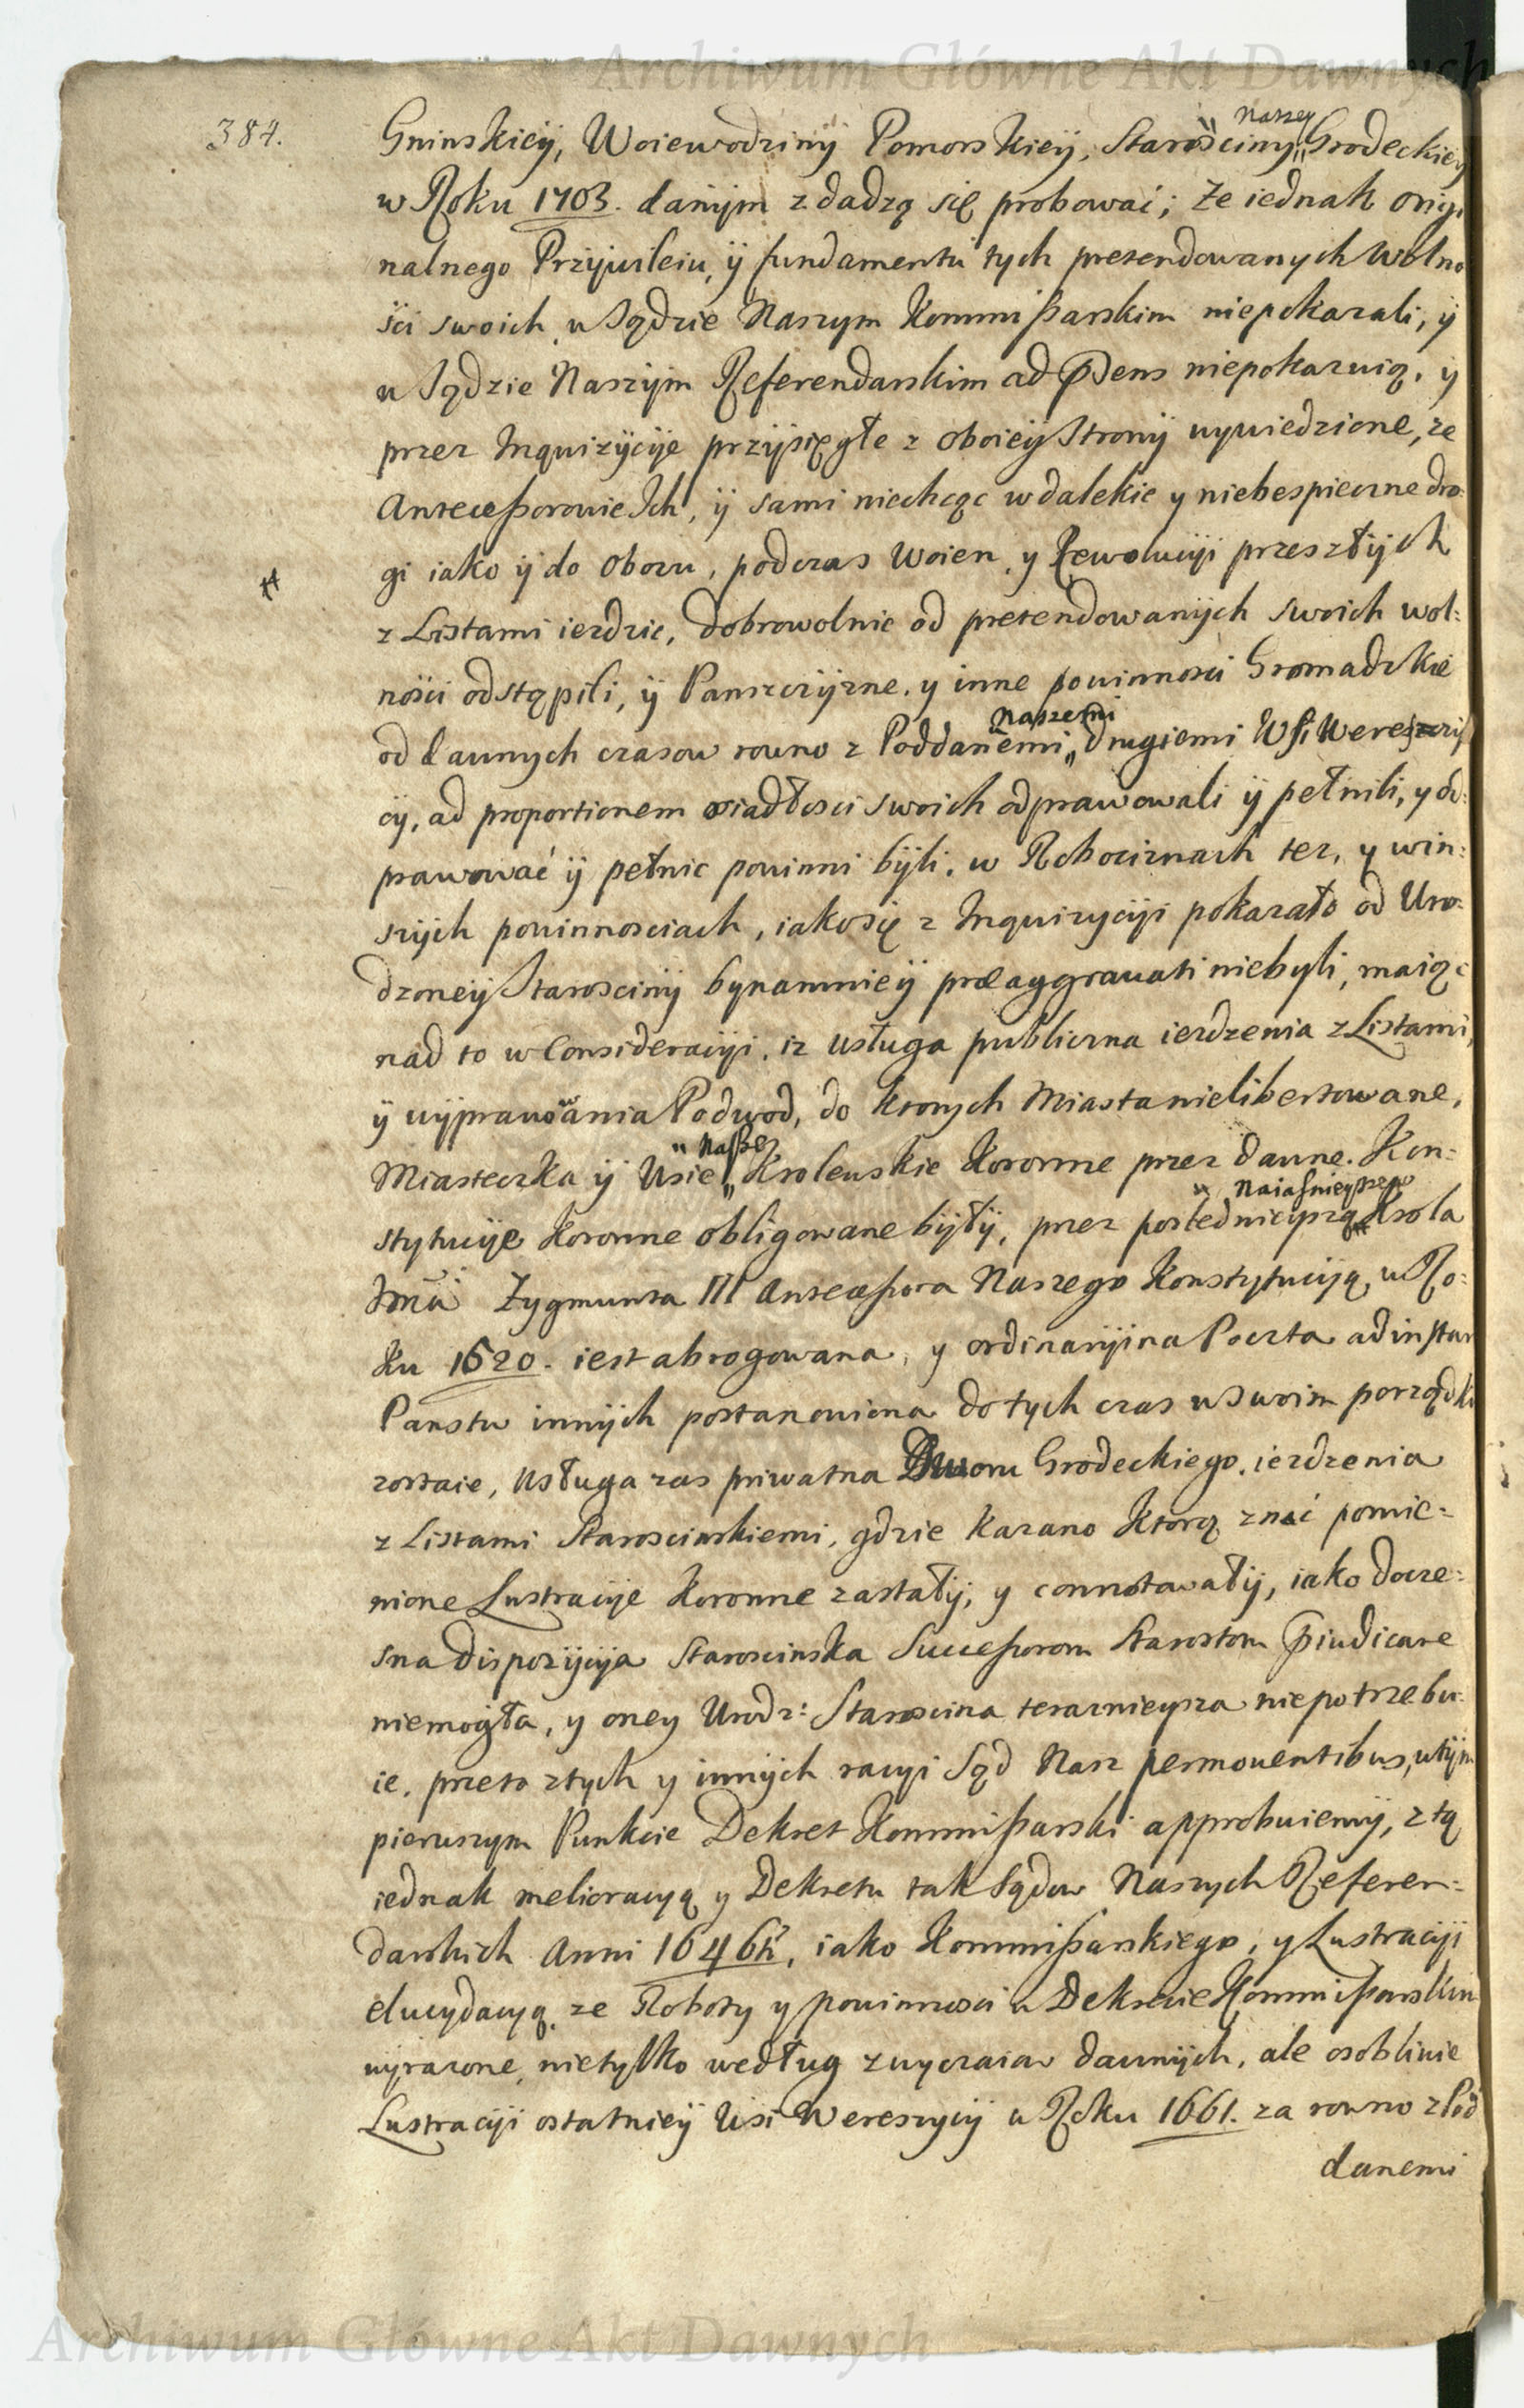 Archiwum Główne Akt Dawnych
384.
Naszey
Gninskieÿ, Woiewodzinÿ Pomorskieÿ, Starościny „ Grodeckiey
w Roku 1703. danÿm zdadzą się probować; że iednak origi
nalnego Przÿwileiu, ÿ fundamentu tych pretendowanych wolno
ści swoich, w Sądzie Naszym Kommißarskim niepokazali, ÿ
w Sądzie Naszÿm Referendarskim ad pdens niepokazuią, ÿ
przez Inquizÿcÿe przÿsięgłe z oboieÿ Stronÿ wywiedzione, ze
Anteceßorowie Ich, ÿ sami niechcąc w dalekie y niebespieczne dro:
gi iako ÿ do Obozu, podczas Woien, y Rewolucÿi przeszłÿch
z Listami iezdzic, dobrowolnie od pretendowanÿch swoich wol:
ności odstąpili, ÿ Panszczÿzne, y inne powinności Gromadzkie
Naszemi
od dawnych czasow rowno z Poddanemi „ drugiemi Wsi Wereszczÿ
cÿ, ad proportionem osiadłosci swoich odprawowali ÿ pełnili, y od:
prawować ÿ pełnic powinni bÿli, w Robociznach tez, y win:
szÿch powinnosciach, iako się z Inquizycÿi pokazało od Uro:
dzoneÿ Starosciny bynamnieÿ præaggrauati niebyli, maiąc
nad to w Consideracÿi, iz usługa publiczna iezdzenia z Listami,
ÿ wÿprawowania Podwod, do ktorych Miasta nielibertowane,
„ Naßze
Miasteczka ÿ Wsie „ Krolewskie Koronne przez dawne Kon:
„ Naiaśnieyszego
stytucÿe Koronne obligowane bÿłÿ, przez poslednieyszą Krola
Jmci Zygmunta III Anteceßora Naszego Konstytucÿą, w Ro:
ku 1620. iest abrogowana, y ordinarÿina Poczta ad instar
Panstw innÿch postanowiona do tych czas w swoim porządku
zostaie, Usługa zas priwatna Dworu Grodeckiego, iezdzenia
z Listami Staroscinskiemi, gdzie kazano ktorą znać pomie:
nione Lustracÿe Koronne zastałÿ, y connotawałÿ, iako docze:
sna dispozÿcÿa Staroscinska Succeßorom Starostom piudicare
niemogła, y oney Urodz: Starościna terazniejsza niepotrzebu:
ie, przeto z tych y innÿch racyi Sąd Nasz permouentibus, w tÿm
pierwszym Punkcie Dekret Kommißarski approbuiemÿ, z tą
iednak melioracyą y Dekretu tak Sądow Naszych Referen:
darskich Anni 1646ti, iako Kommißarskiego, y Lustracÿi
elucydacyą, ze Roboty y powinności w Dekrecie Kommißarskim
wÿrazone, nietylko według zwyczaiow dawnÿch, ale osobliwie
Lustracÿi ostatnieÿ Wsi Wereszycÿ w Roku 1661. za rowno z Pod
danemi
Archiwum Główne Akt Dawnych